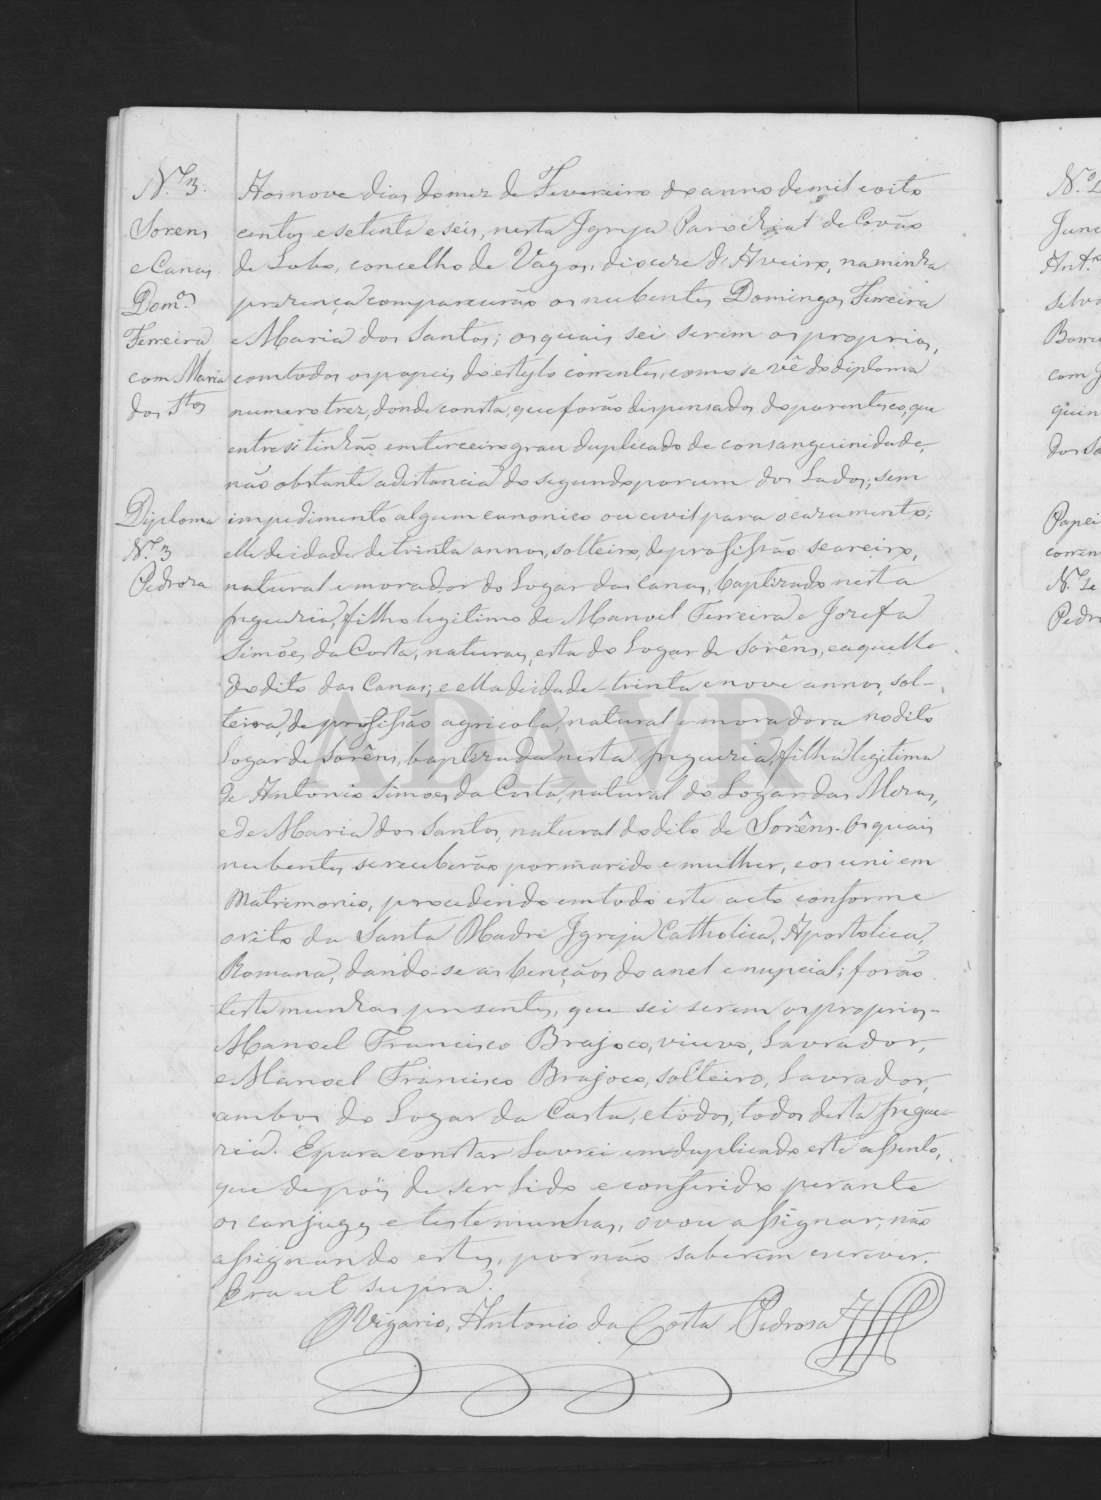 N.º 3.
Sorens
e Canas
Dom.os
Ferreira
com Maria
dos S.tos
Diploma
N.º 3
Pedroza
Aos nove dias do mez de Fevereiro do anno de mil e oito
centos e setenta e séis, nesta Igreja Parochial de Covão
de Lobo, concelho de Vagos, diocese d'Aveiro, na minha
presença comparecerão os nubentes Domingos Ferreira
e Maria dos Santos; os quais sei serem os proprios,
com todos os papeis do estylo correntes, como se vê do diploma
numero trez, donde consta, que forão dispensados do parentesco, que
entre si tinhão em terceiro grau duplicado de consanguinidade,
não obstante a distancia do segundo por um dos Lados; sem
impedimento algum canonico ou civil para o casamento;
elle de idade de trinta annos, solteiro, de profissão seareiro,
natural e morador do Logar das Canas, baptizado nesta
freguezia, filho legitimo de Manoel Ferreira e Jozefa
Simões da Costa, naturaes, esta do Logar de Sorêns, e aquelle
do dito das Canas; e ella de idade trinta e nove annos, sol-
teira, de profissão agricola, natural e moradora no dito
Logar de Sorêns, baptizada nesta freguezia, filha legitima
de Antonio Simoes da Costa, natural do Logar das Mesas,
e de Maria dos Santos, natural do dito de Sorêns. Os quais
nubentes se receberão por marido e mulher, e os uni em
Matrimonio, procedendo em todo este acto conforme
o rito da Santa Madre Igreja Catholica, Apostolica,
Romana, dando-se as bençãos do anel e nupcial; forão
testemunhas presentes, que sei serem os proprios-
Manoel Francisco Brajoco, viuvo, Lavrador,
e Manoel Francisco Brajoco, solteiro, Lavrador,
ambos do Logar da Costa, e todos, todos desta fregue-
zia. E para constar Lavrei em duplicado este assento,
que depois de ser Lido e conferido perante
os conjuges e testemunhas, o vou assignar, não
assignando estes, por não saberem escrever.
Era ut supra.
O Vigario, Antonio da Costa Pedrosa
ADAVR
N.º
Junc
Ant.º
Silva
com J
dos Sa
Papei
corren
N.º
Pedro